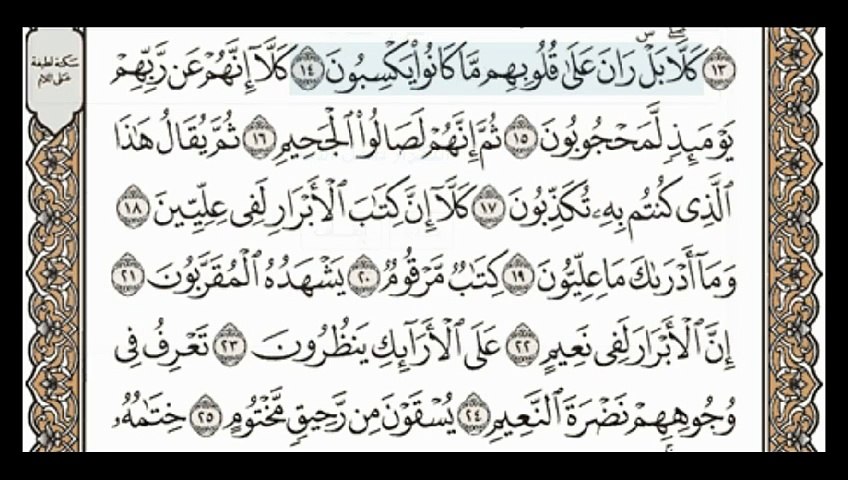 ١٣ كَلَّا ۖ بَلْ ۜ رَانَ عَلَىٰ قُلُوبِهِم مَّا كَانُوا۟ يَكْسِبُونَ ١٤ كَلَّآ إِنَّهُمْ عَن رَّبِّهِمْ
سكتة لطيفة
على اللام
يَوْمَئِذٍ لَّمَحْجُوبُونَ ١٥ ثُمَّ إِنَّهُمْ لَصَالُوا۟ ٱلْجَحِيمِ ١٦ ثُمَّ يُقَالُ هَـٰذَا
ٱلَّذِى كُنتُم بِهِۦ تُكَذِّبُونَ ١٧ كَلَّآ إِنَّ كِتَـٰبَ ٱلْأَبْرَارِ لَفِى عِلِّيِّينَ ١٨
وَمَآ أَدْرَىٰكَ مَا عِلِّيُّونَ ١٩ كِتَـٰبٌ مَّرْقُومٌ ٢٠ يَشْهَدُهُ ٱلْمُقَرَّبُونَ ٢١
إِنَّ ٱلْأَبْرَارَ لَفِى نَعِيمٍ ٢٢ عَلَى ٱلْأَرَآئِكِ يَنظُرُونَ ٢٣ تَعْرِفُ فِى
وُجُوهِهِمْ نَضْرَةَ ٱلنَّعِيمِ ٢٤ يُسْقَوْنَ مِن رَّحِيقٍ مَّخْتُومٍ ٢٥ خِتَـٰمُهُۥ